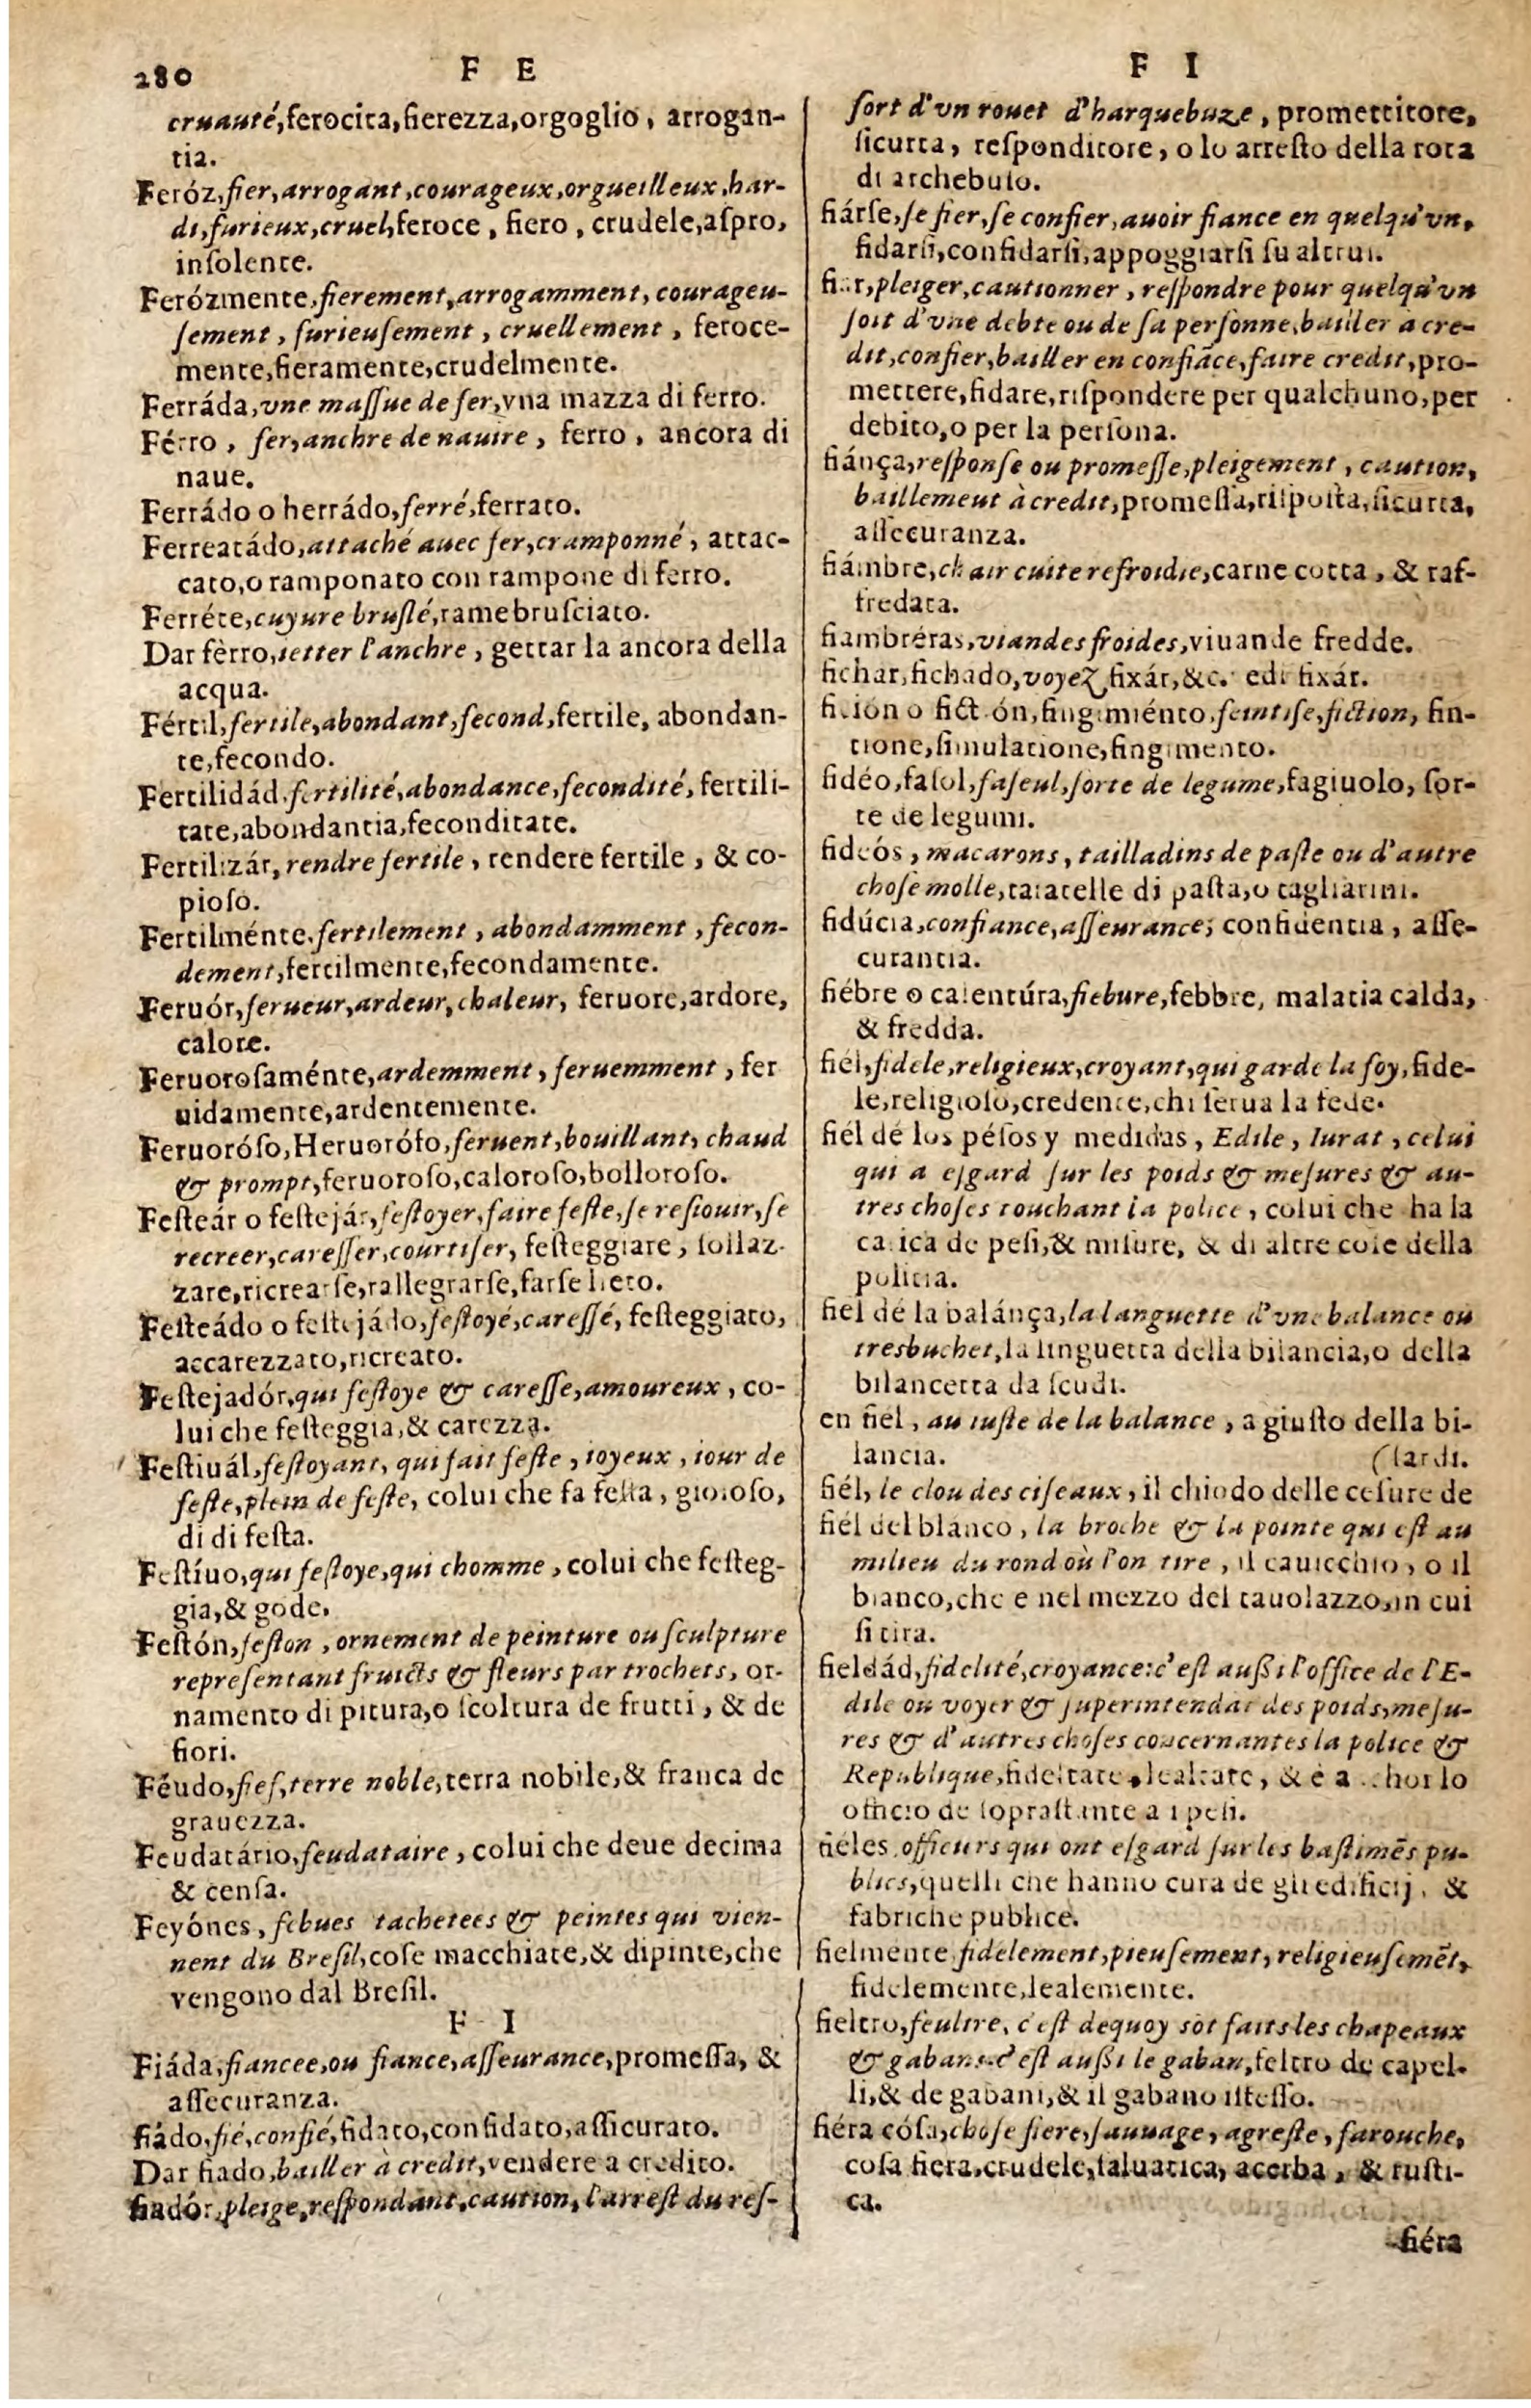 280
F E
cruauté,ferocita,fierezza,orgoglio, arrogan-
tia.
Feróz,fier,arrogant,courageux,orgueilleux,har-
di,furieux,cruel,feroce, fiero, crudele,aſpro,
inſolente.
Ferózmente,fierement,arrogamment, courageu-
ſement, furieuſement, cruellement, feroce-
mente,fieramente,crudelmente.
Ferráda,vne maſſue de fer,vna mazza di ferro.
Férro, fer,anchre de nauire, ferro, ancora di
naue.
Ferrádo o herrádo,ferré,ferrato.
Ferreatádo,attaché auec fer,cramponné, attac-
cato,o ramponato con rampone di ferro.
Ferréte,cuyure bruſlé,rame bruſciato.
Dar fèrro,ietter l'anchre, gettar la ancora della
acqua.
Fértil,fertile,abondant,fecond,fertile, abondan-
te,fecondo.
Fertilidád,fertilité,abondance,fecondité, fertili-
tate,abondantia,feconditate.
Fertilizár, rendre fertile, rendere fertile, & co-
pioſo.
Fertilménte,fertilement, abondamment, fecon-
dement,fertilmente,fecondamente.
Feruór,ferueur,ardeur,chaleur, feruore,ardore,
calore.
Feruoroſaménte,ardemment, feruemment, fer
uidamente,ardentemente.
Feruoróſo,Heruoróſo,feruent,bouillant, chaud
& prompt,feruoroſo,caloroſo,bolloroſo.
Feſteár o feſtejár,feſtoyer,faire feſte,ſe reſiouir,ſe
recreer,careſſer,courtiſer, feſteggiare, ſollaz-
zare,ricrearſe,rallegrarſe,farſe lieto.
Feſteádo o feſtejádo,feſtoyé,careſſé, feſteggiato,
accarezzato,ricreato.
Feſtejadór,qui feſtoye & careſſe,amoureux, co-
lui che feſteggia,& carezza.
Feſtiuál,feſtoyant, qui fait feſte, ioyeux, iour de
feſte,plein de feſte, colui che fa feſta, gioioſo,
di di feſta.
Feſtíuo,qui feſtoye,qui chomme, colui che feſteg-
gia,& gode.
Feſtón,feſton, ornement de peinture ou ſculpture
repreſentant fruicts & fleurs par trochets, or-
namento di pitura,o ſcoltura de frutti, & de
fiori.
Féudo,fief,terre noble,terra nobile,& franca de
grauezza.
Feudatário,feudataire, colui che deue decima
& cenſa.
Feyónes, febues tachetees & peintes qui vien-
nent du Breſil,coſe macchiate,& dipinte,che
vengono dal Breſil.
F I
Fiáda,fiancee,ou fiance,aſſeurance,promeſſa, &
aſſecuranza.
fiádo,fié,confié,fidato,confidato,aſſicurato.
Dar fiado,bailler à credit,vendere a credito.
fiadór,pleige,reſpondant,caution, l'arreſt du reſ-
F I
ſort d'vn rouet d'harquebuze, promettitore,
ſicurta, reſponditore, o lo arreſto della rota
di archebuſo.
fiárſe,ſe fier,ſe confier,auoir fiance en quelqu'vn,
fidarſi,confidarſi,appoggiarſi ſu altrui.
fiar,pleiger,cautionner, reſpondre pour quelqu'vn
ſoit d'vne debte ou de ſa perſonne,bailler a cre-
dit,confier,bailler en confiāce,faire credit,pro-
mettere,fidare,riſpondere per qualchuno,per
debito,o per la perſona.
fiánça,reſponſe ou promeſſe,pleigement, caution,
baillement à credit,promeſſa,riſpoſta,ſicurta,
aſſecuranza.
fiámbre,chair cuite refroidie,carne cotta, & raf-
fredata.
fiambréras,viandes froides,viuande fredde.
fichar,fichado,voyez fixár,&c. edi fixár.
fición o fictión,fingimiénto,feintiſe,fiction, fin-
tione,ſimulatione,fingimento.
fidéo,faſol,faſeul,ſorte de legume,fagiuolo, ſor-
te de legumi.
fideós, macarons, tailladins de paſte ou d'autre
choſe molle,tatatelle di paſta,o tagliarini.
fidúcia,confiance,aſſeurance, confidentia, aſſe-
curantia.
fiébre o calentúra,fiebure,febbre, malatia calda,
& fredda.
fiél,fidele,religieux,croyant,qui garde la foy,fide-
le,religioſo,credente,chi ſerua la fede.
fiél dé los péſos y medidas, Edile, Iurat, celui
qui a eſgard ſur les poids & meſures & au-
tres choſes touchant la police, colui che ha la
carica de peſi,& miſure, & di altre coſe della
politia.
fiel dé la balánça,la languette d'vne balance ou
tresbuchet,la linguetta della bilancia,o della
bilancetta da ſcudi.
en fiel, au iuſte de la balance, a giuſto della bi-
lancia. (ſardi.
fiél, le clou des ciſeaux, il chiodo delle ceſure de
fiél del blánco, la broche & la pointe qui eſt au
milieu du rond où l'on tire, il cauicchio, o il
bianco,che e nel mezzo del tauolazzo,in cui
ſi tira.
fieldád,fidelité,croyance:c'eſt auſſi l'office de l'E-
dile ou voyer & ſuperintendāt des poids,meſu-
res & d'autres choſes concernantes la police &
Republique,fideltate,lealtate, & è a chor lo
officio de ſopraſtante a i peſi.
fiéles officiers qui ont eſgard ſur les baſtimēs pu-
blics,quelli che hanno cura de gli edificij, &
fabriche publice.
fielmente fidelement,pieuſement, religieuſemēt,
fidelemente,lealemente.
fieltro,feultre, c'eſt dequoy sōt faits les chapeaux
& gabans.c'eſt auſſi le gaban,feltro de capel-
li,& de gabani,& il gabano iſteſſo.
fiéra cóſa,choſe fiere,ſauuage, agreſte, farouche,
coſa fiera,crudele,ſaluatica, acerba, & ruſti-
ca.
fiéra